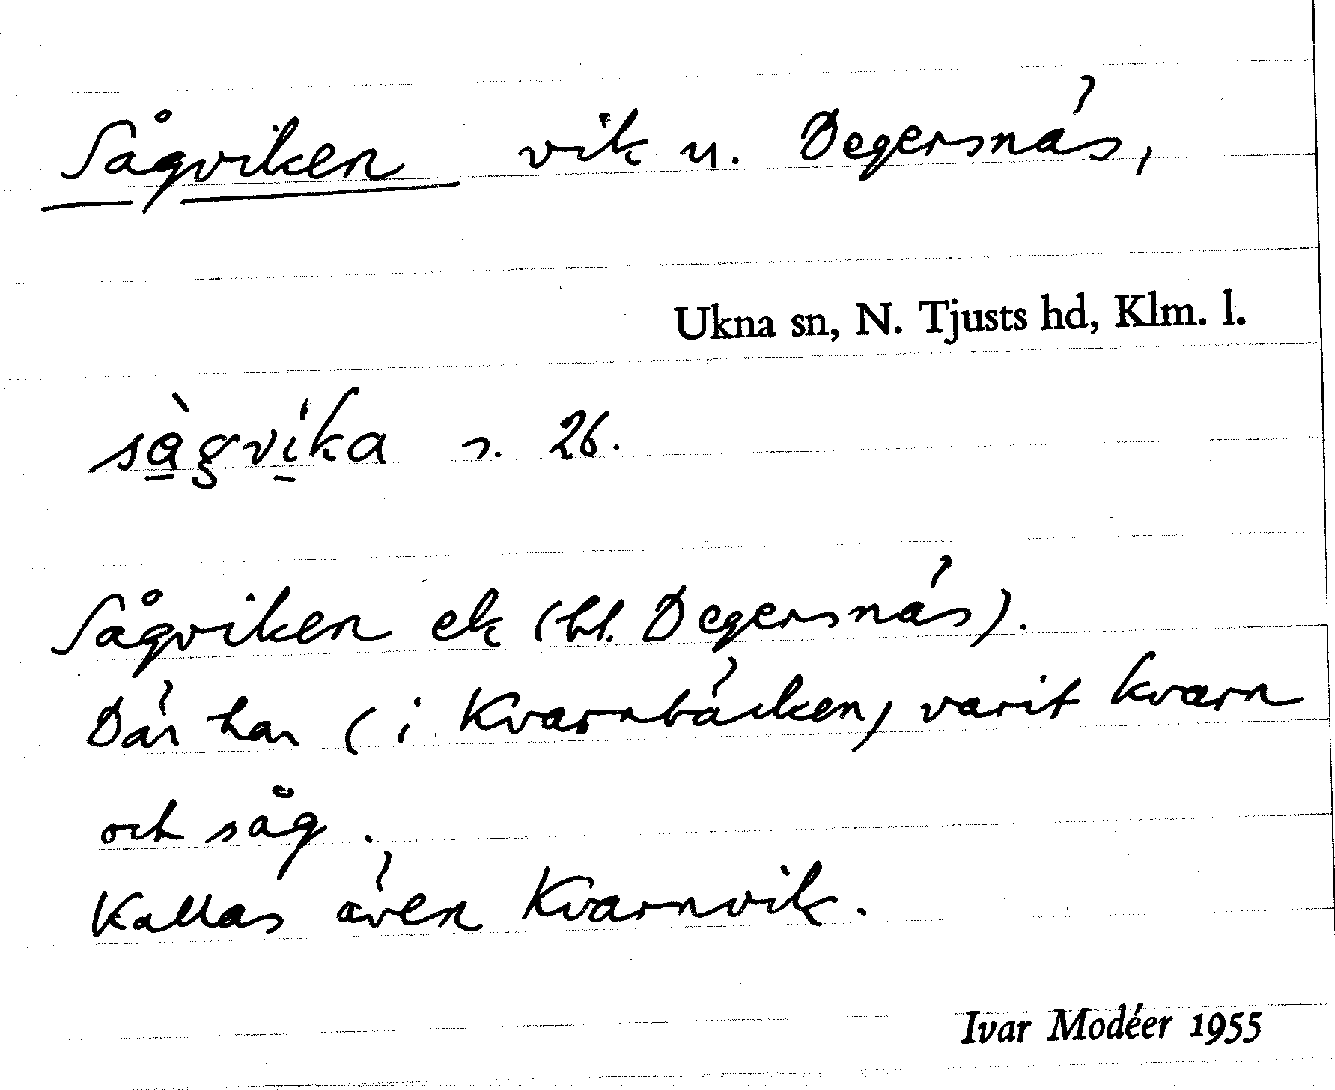 Sågviken vik u. Degersnäs,
Ukna sn, N. Tjusts hd, Klm. l.
sàgvíka s. 26.
Sågviken ek (bl. Degersnäs).
Där har (i Kvarnbäcken) varit kvarn
och såg.
Kallas även Kvarnvik.
Ivar Modéer 1955